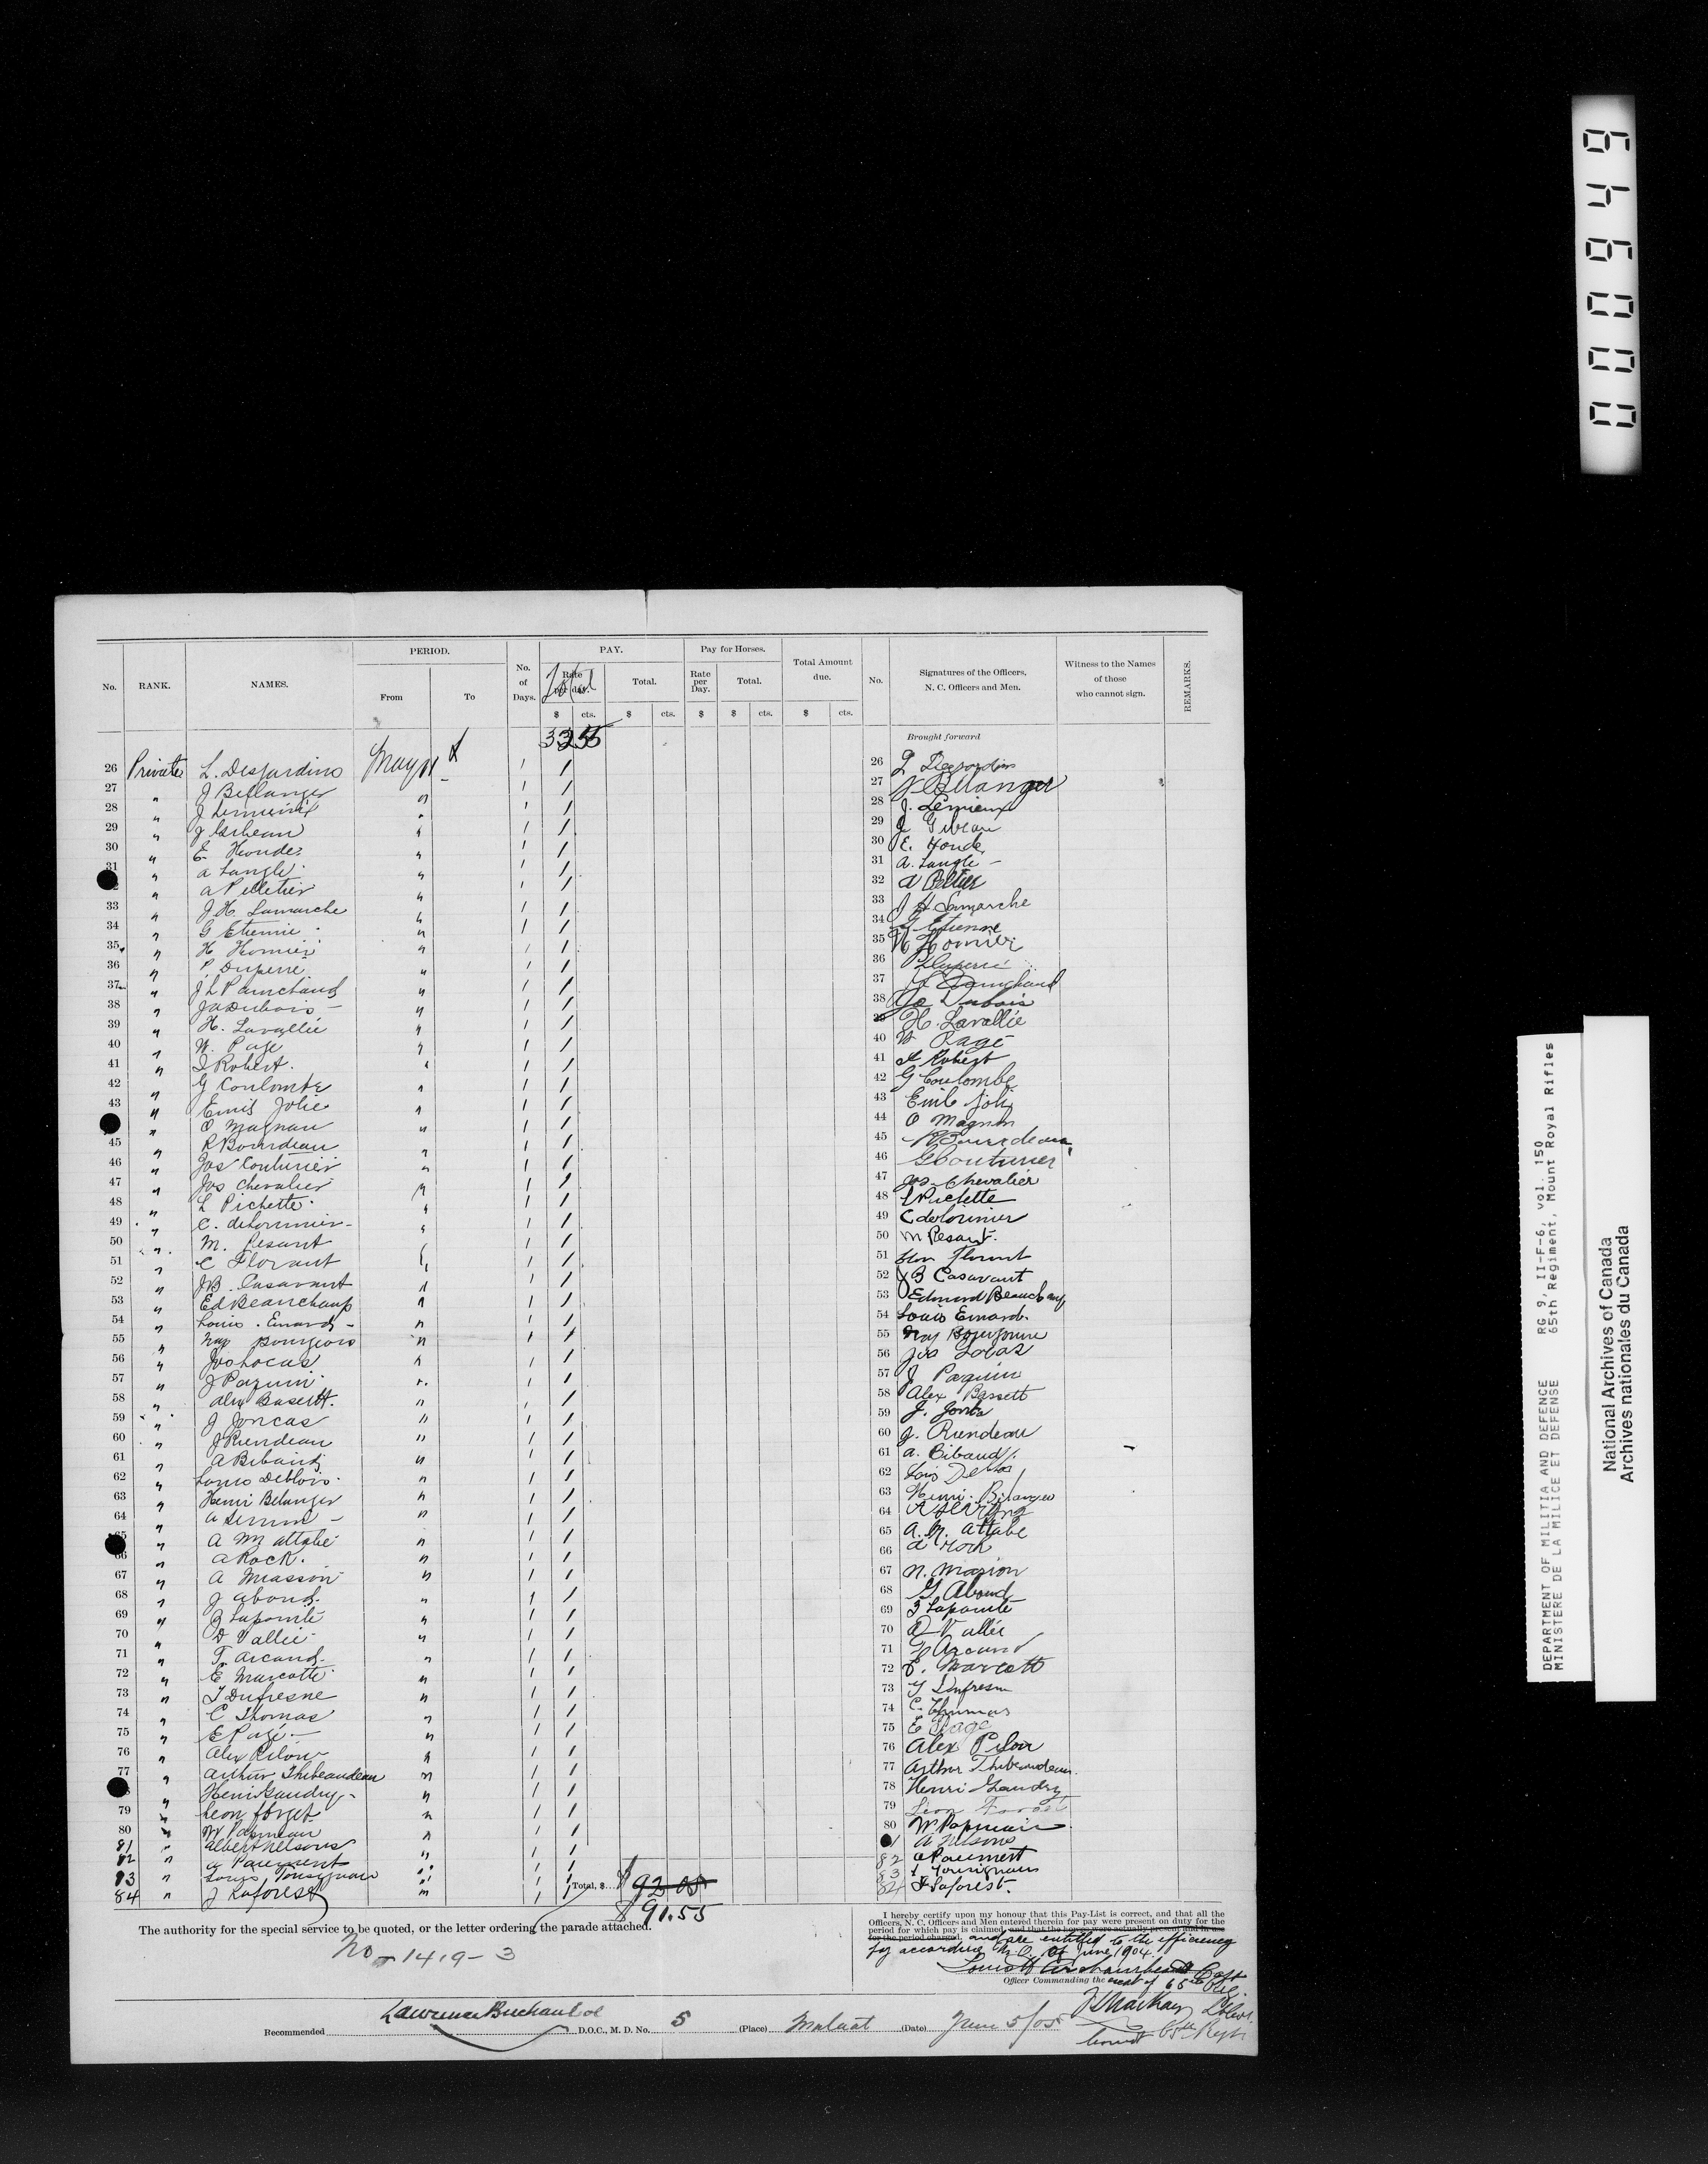 No. RANK. NAMES. PERIOD. From To No. of Days. PAY. Rate per day. Total. Pay for Horses. Rate per Day. Total. Total Amount due. No. Signatures of the Officers, N. C. Officers and Men. Witness to the Names of those who cannot sign. REMARKS.
$ cts. $ cts. $ $ cts. $ cts.
Brought forward
26 Private L. Desjardins May 1 1 26 L Desjardins
27 " J Bellanger " 1 1 27 J Bélanger
28 " J Lemieux " 1 1 28 J. Lemieux
29 " J " 1 1 29 J
30 " E Houde " 1 1 30 E. Houde
31 " A Langle " 1 1 31 A. Langle
" A Pelletier " 1 1 32 A
33 " J H. Lamarche " 1 1 33 J H Lamarche
34 " G Etienne " 1 1 34 G Etienne
35 " H " 1 1 35 H
36 " P Duperré " 1 1 36 P Duperré
37 " J L Painchaud " 1 1 37 Painchaud
38 " Jos Dubois " 1 1 38 Jo Dubois
39 " H. Lavallée " 1 1 39 H. Lavallée
40 " W. Pagé " 1 1 40 W Pagé
41 " I Robert " 1 1 41 Robert
42 " G Coulombe " 1 1 42 G Coulombe
43 " Emile Jolie " 1 1 43 Emile Joli
" O Magnan " 1 1 44 O Magnan
45 " R Bourdeau " 1 1 45 R Bourdeau
46 " Jos Couturier " 1 1 46 Couturier
47 " Jos Chevalier " 1 1 47 Jos Chevalier
48 " L Pichette " 1 1 48 L Pichette
49 " C. deLorimier " 1 1 49 C deLorimier
50 " M. Pesant " 1 1 50 M Pesant.
51 " C Florant " 1 1 51
52 " J B. Casavant " 1 1 52 J B Casavant
53 " Ed Beauchamp " 1 1 53 Edmond Beauchamp
54 " Louis Emard " 1 1 54 Louis Emard
55 " Nap Bourgeois " 1 1 55 Nap
56 " Jos Locas " 1 1 56 Jos Locas
57 " J Paquin " 1 1 57 J Paquin
58 " Alex Basett. " 1 1 58 Alex Bassett
59 " J Joncas " 1 1 59 J.
60 " J Riendeau " 1 1 60 J. Riendeau
61 " A Bibaud " 1 1 61 A. Bibaud
62 " Louis Deblois " 1 1 62
63 " Henri Bélanger " 1 1 63 Henri Bélanger
64 " A " 1 1 64
65 " A M attabé " 1 1 65 A. M. attabe
66 " A Rock. " 1 1 66 A Rock
67 " A Masson " 1 1 67 N. Masson
68 " J Aboud " 1 1 68 G Aboud
69 " Z Lapointe " 1 1 69 Z Lapointe
70 " D Vallée " 1 1 70 D Vallée
71 " F. Arcand " 1 1 71 F Arcand
72 " E Marcotte " 1 1 72 E. Marcott
73 " T Dufresne " 1 1 73 T Dufresne
74 " C Thomas " 1 1 74 C. Thomas
75 " E Pagé " 1 1 75 E Pagé
76 " Alex Pilon " 1 1 76 Alex Pilon
77 " Arthur Thibeaudeau " 1 1 77 Arthur Thibeaudeau
" Henri Gaudry " 1 1 78 Henri Gaudry
79 " Leon forget " 1 1 79 Leon
80 " W Papineau " 1 1 80 W Papineau
81 " Albert Nelsons " 1 1 A Nelsons
82 " A Paiement " 1 1 82 A Paiement
83 " Louis Tousignant " 1 1 83 L Tousignant
84 " J Laforest " 1 1 84 Laforest.
Total, $ $92.05
$91.55
The authority for the special service to be quoted, or the letter ordering the parade attached.
No 1419-3
I hereby certify upon my honour that this Pay-List is correct, and that all the
Officers, N. C. Officers and Men entered therein for pay were present on duty for the
period for which pay is claimed, and that the horses were actually present and in use
for the period charged, and are entitled to the efficiency
pay according G. O. of June 1904.
Officer Commanding the
Recommended Lawrence Buchan Col D.O.C., M. D. No. 5 (Place) (Date) June 5/05
65th Regt
649000
DEPARTMENT OF MILITIA AND DEFENCE RG 9, II-F-6, vol. 150
MINISTERE DE LA MILICE ET DEFENSE 65th Regiment, Mount Royal Rifles
National Archives of Canada
Archives nationales du Canada